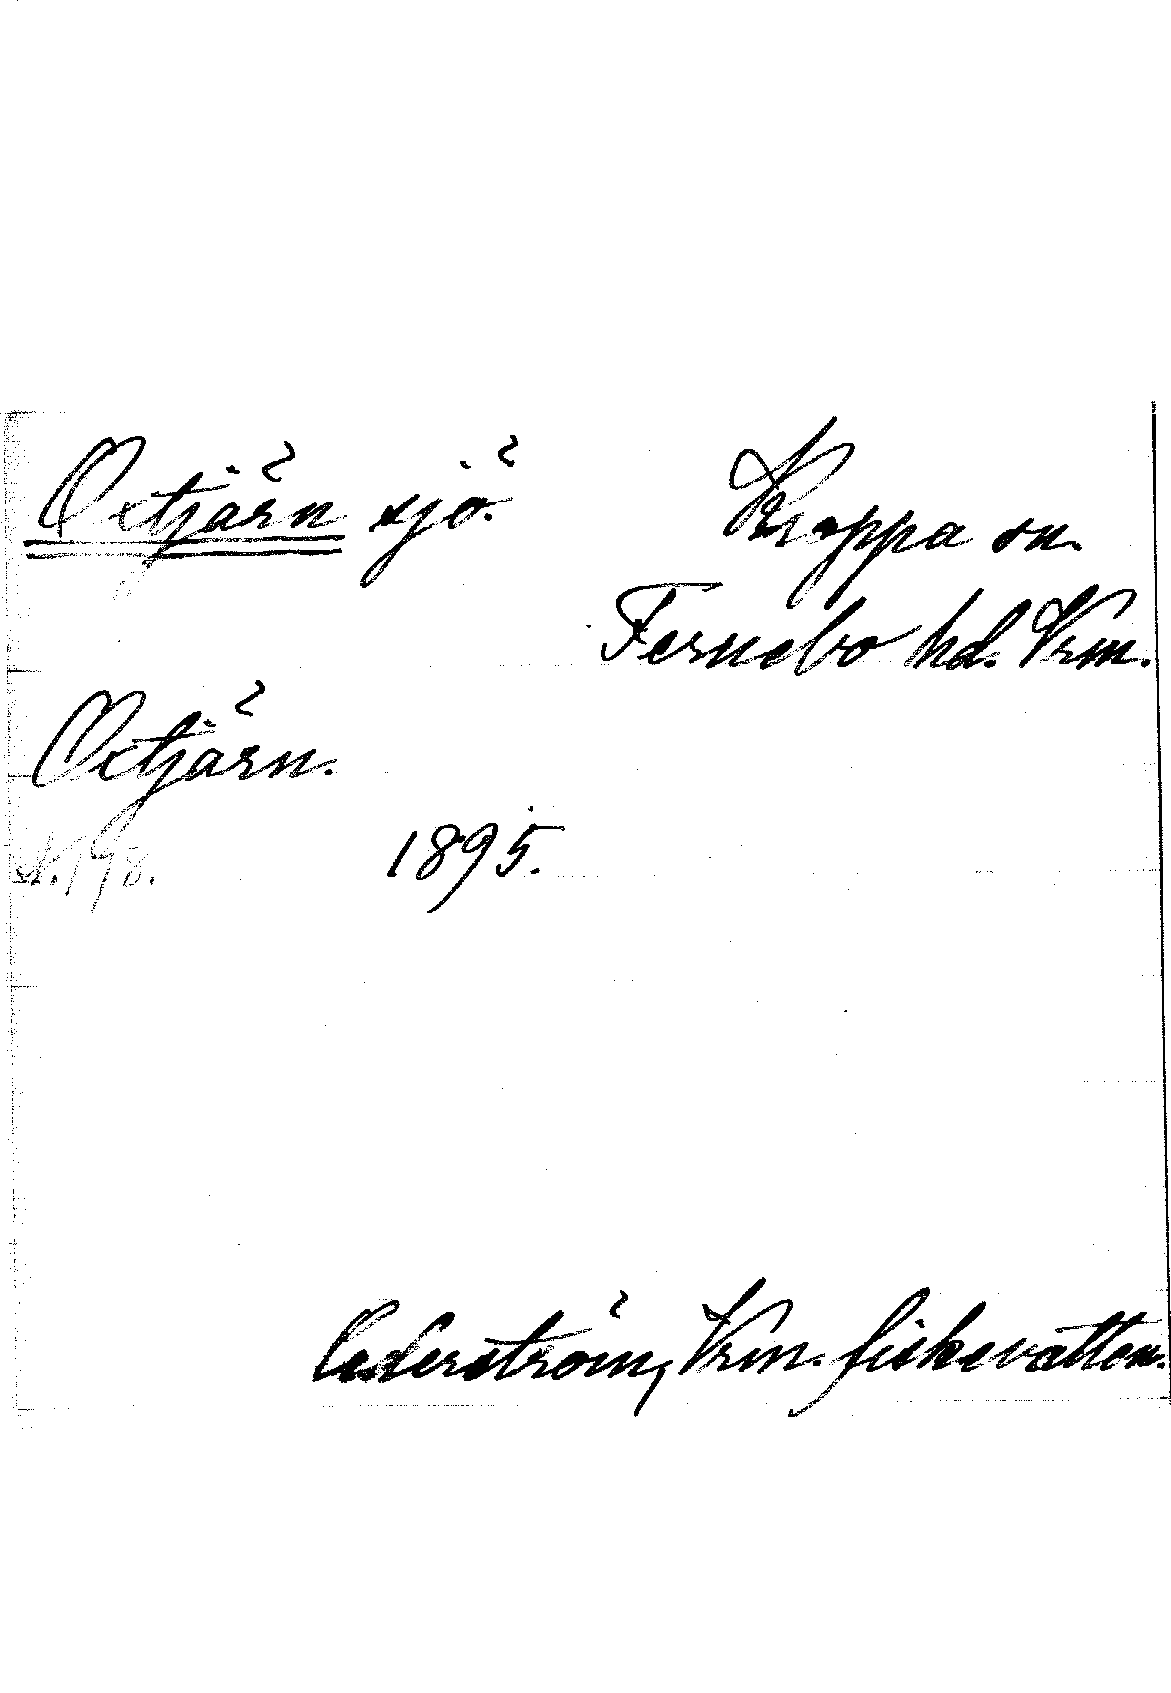 Oxtjärn sjö. Kroppa sn.
Fernebo hd. Vrm.
Oxtjärn.
1895.
Cederström, Vrm. fiskevatten.